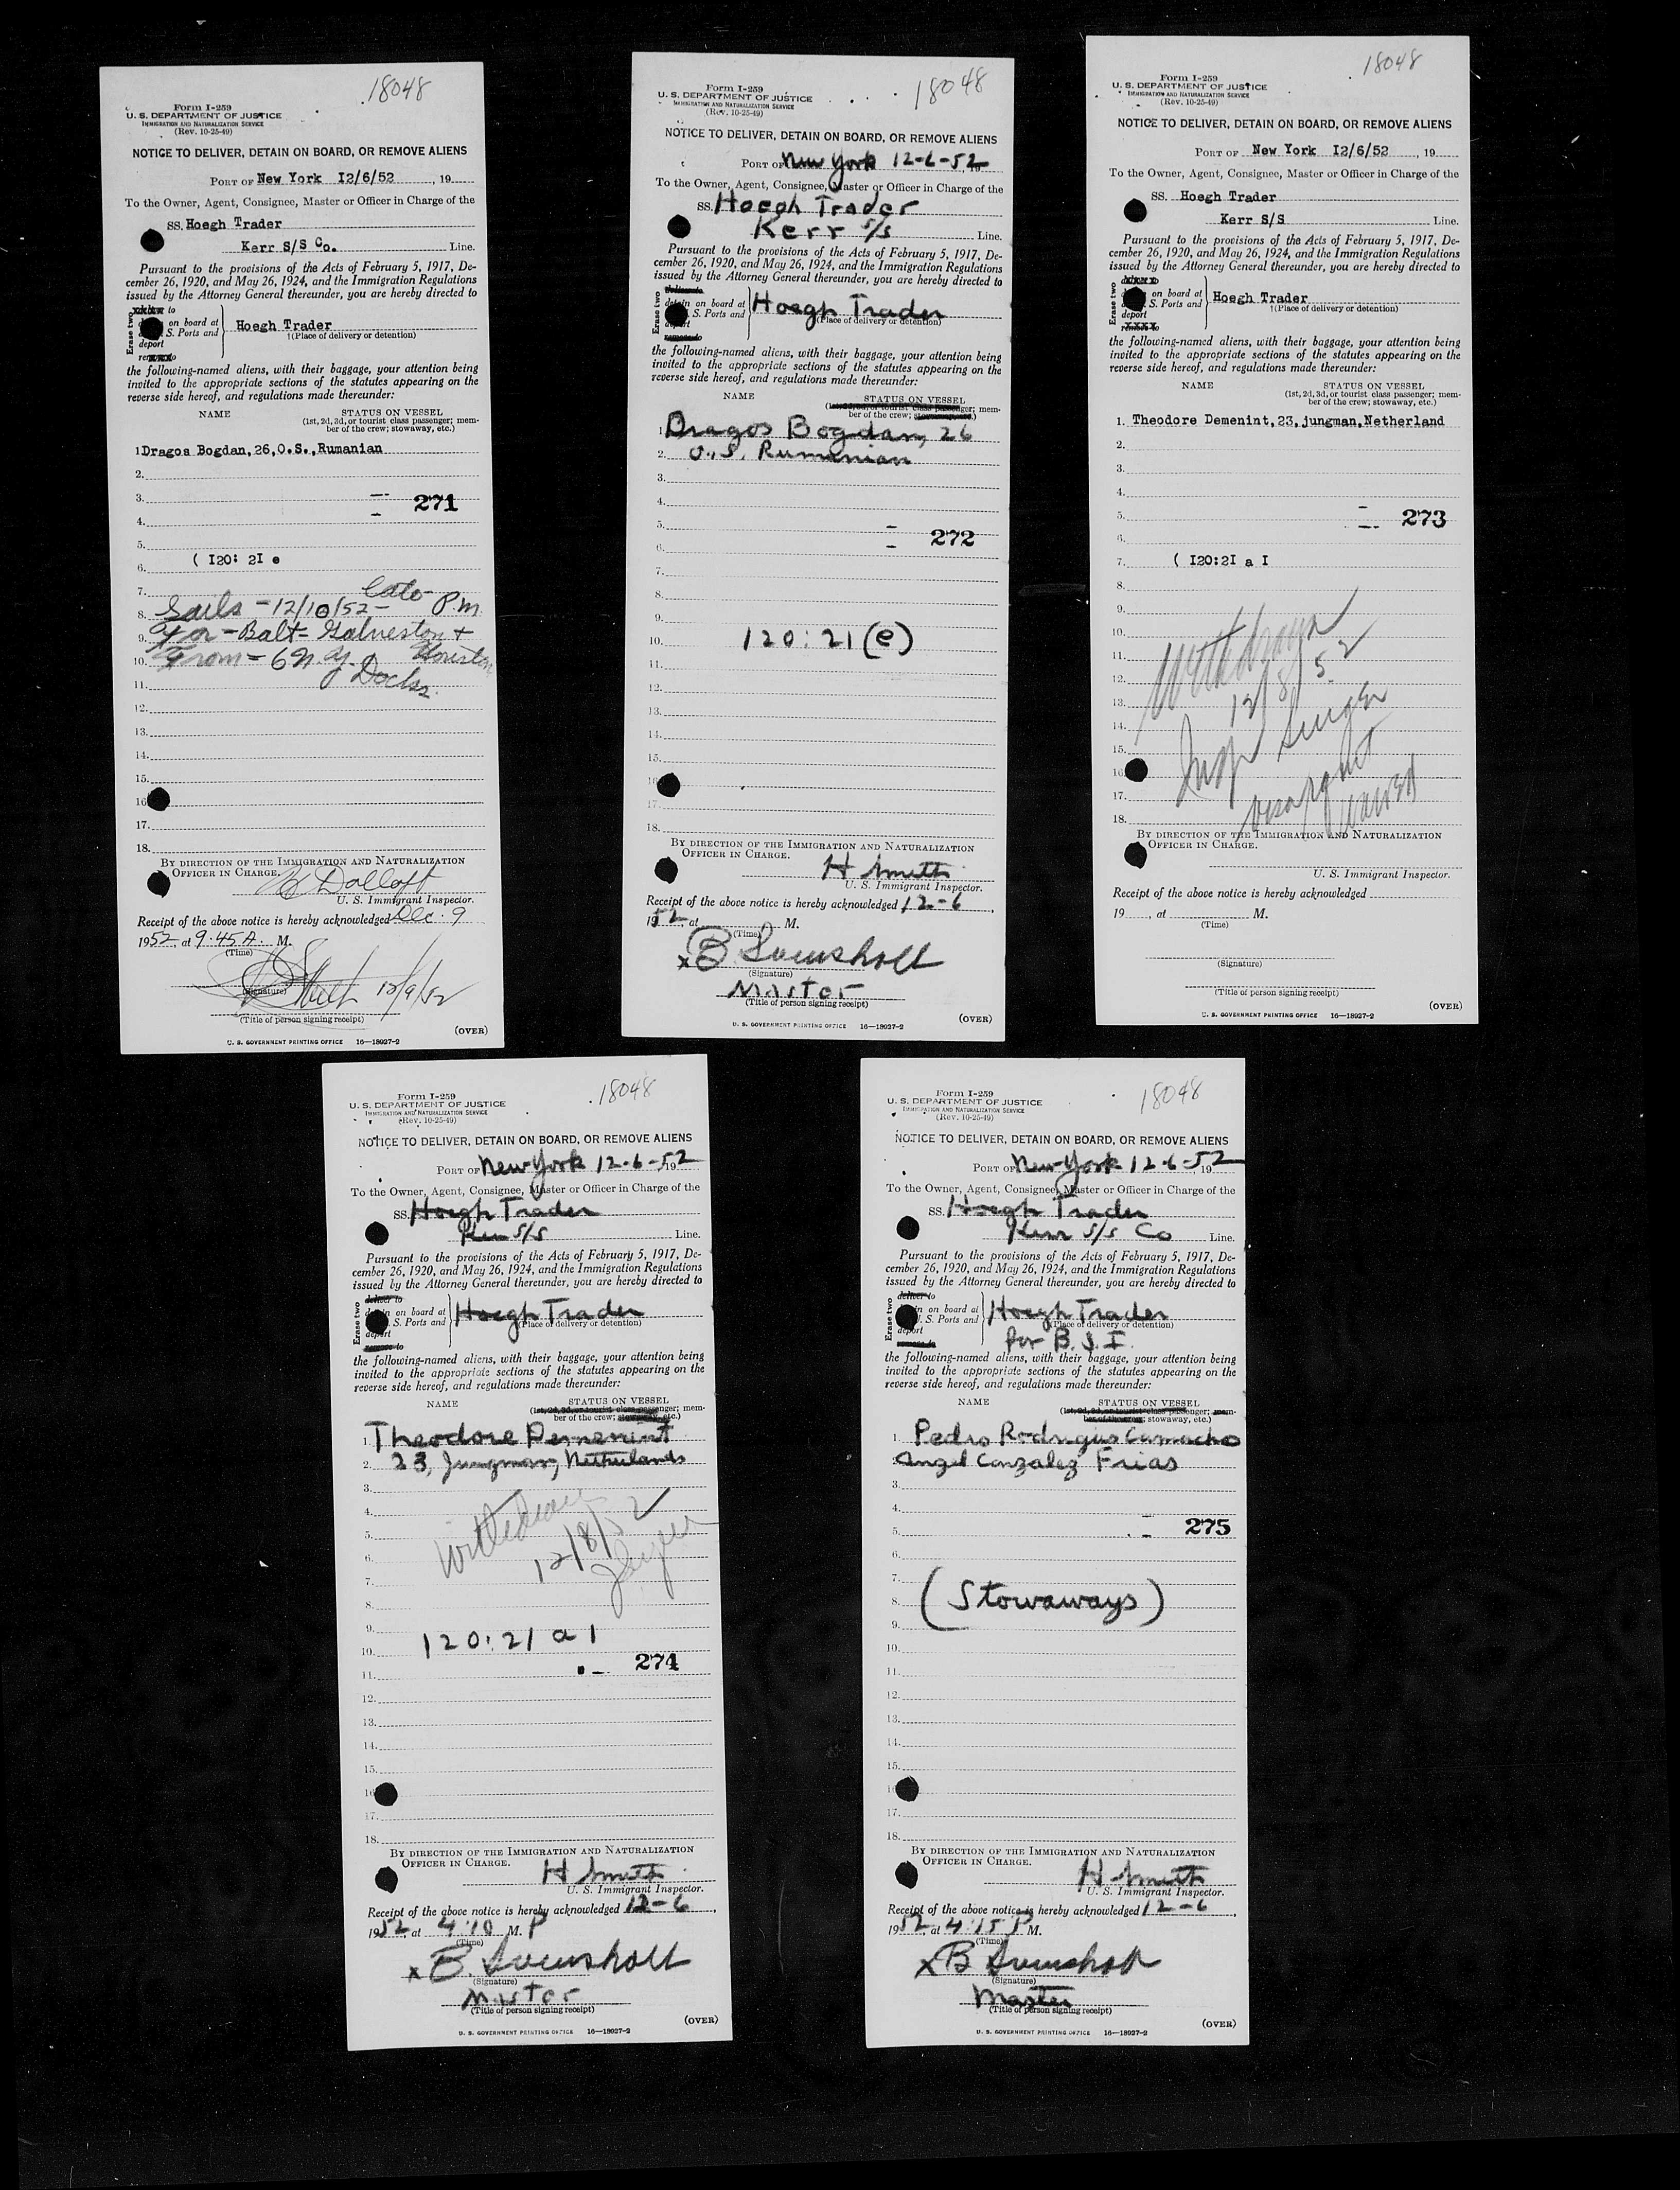 18048
Form I-259
U. S. DEPARTMENT OF JUSTICE
IMMIGRATION AND NATURALIZATION SERVICE
(Rev. 10-25-49)
NOTICE TO DELIVER, DETAIN ON BOARD, OR REMOVE ALIENS
PORT OF New York I2/6/52, 19
To the Owner, Agent, Consignee, Master or Officer in Charge of the
SS. Hoegh Trader
Kerr S/S Co. Line.
Pursuant to the provisions of the Acts of February 5, 1917, De-
cember 26, 1920, and May 26, 1924, and the Immigration Regulations
issued by the Attorney General thereunder, you are hereby directed to
Erase two
to
on board at
S. Ports and
deport
Hoegh Trader
†(Place of delivery or detention)
the following-named aliens, with their baggage, your attention being
invited to the appropriate sections of the statutes appearing on the
reverse side hereof, and regulations made thereunder:
NAME STATUS ON VESSEL
(1st, 2d, 3d, or tourist class passenger; mem-
ber of the crew; stowaway, etc.)
1 Dragos Bogdan,26,O.S.,Rumanian
2.
3.
271
4.
5.
( I20: 2I e
6.
7.
8. Sails - 12/10/52 - Late P.M.
9. For - Balt - Galveston + Houston
10. From - 6 N.Y. Docks.
11.
12.
13.
14.
15.
16
17.
18.
BY DIRECTION OF THE IMMIGRATION AND NATURALIZATION
OFFICER IN CHARGE.
U. S. Immigrant Inspector.
Receipt of the above notice is hereby acknowledged Dec. 9
1952, at 9.45 A. M.
(Time)
12/9/52
(Signature)
(Title of person signing receipt)
(OVER)
U. S. GOVERNMENT PRINTING OFFICE 16—18927-2
18048
Form I-259
U. S. DEPARTMENT OF JUSTICE
IMMIGRATION AND NATURALIZATION SERVICE
(Rev. 10-25-49)
NOTICE TO DELIVER, DETAIN ON BOARD, OR REMOVE ALIENS
PORT OF New York 12-6-52
To the Owner, Agent, Consignee, Master or Officer in Charge of the
SS. Hoegh Trader
Kerr S/S Line.
Pursuant to the provisions of the Acts of February 5, 1917, De-
cember 26, 1920, and May 26, 1924, and the Immigration Regulations
issued by the Attorney General thereunder, you are hereby directed to
Erase two
detain on board at
S. Ports and
Hoegh Trader
(Place of delivery or detention)
the following-named aliens, with their baggage, your attention being
invited to the appropriate sections of the statutes appearing on the
reverse side hereof, and regulations made thereunder:
NAME STATUS ON VESSEL
(1st, 2d, 3d, or tourist class passenger; mem-
ber of the crew; stowaway, etc.)
1. Dragos Bogdan, 26
2. O.S. Rumanian
3.
4.
5.
272
6.
7.
8.
9.
10. 120:21(e)
11.
12.
13.
14.
15.
16
17.
18.
BY DIRECTION OF THE IMMIGRATION AND NATURALIZATION
OFFICER IN CHARGE.
H Smith
U. S. Immigrant Inspector.
Receipt of the above notice is hereby acknowledged 12-6,
1952, at M.
(Time)
x B
(Signature)
Master
(Title of person signing receipt)
(OVER)
U. S. GOVERNMENT PRINTING OFFICE 16—18927-2
18048
Form I-259
U. S. DEPARTMENT OF JUSTICE
IMMIGRATION AND NATURALIZATION SERVICE
(Rev. 10-25-49)
NOTICE TO DELIVER, DETAIN ON BOARD, OR REMOVE ALIENS
PORT OF New York I2/6/52, 19
To the Owner, Agent, Consignee, Master or Officer in Charge of the
SS. Hoegh Trader
Kerr S/S Line.
Pursuant to the provisions of the Acts of February 5, 1917, De-
cember 26, 1920, and May 26, 1924, and the Immigration Regulations
issued by the Attorney General thereunder, you are hereby directed to
Erase two
on board at
S. Ports and
deport
Hoegh Trader
†(Place of delivery or detention)
the following-named aliens, with their baggage, your attention being
invited to the appropriate sections of the statutes appearing on the
reverse side hereof, and regulations made thereunder:
NAME STATUS ON VESSEL
(1st, 2d, 3d, or tourist class passenger; mem-
ber of the crew; stowaway, etc.)
1. Theodore Demenint,23,jungman,Netherland
2.
3.
4.
5.
273
6.
7. ( I20:2I a I
8.
9.
10.
11.
12.
Withdrawn
12/8/52
13.
14.
15.
16
Insp Singer
17.
18.
waived
BY DIRECTION OF THE IMMIGRATION AND NATURALIZATION
OFFICER IN CHARGE.
U. S. Immigrant Inspector.
Receipt of the above notice is hereby acknowledged
19, at M.
(Time)
(Signature)
(Title of person signing receipt)
(OVER)
U. S. GOVERNMENT PRINTING OFFICE 16—18927-2
18048
Form I-259
U. S. DEPARTMENT OF JUSTICE
IMMIGRATION AND NATURALIZATION SERVICE
(Rev. 10-25-49)
NOTICE TO DELIVER, DETAIN ON BOARD, OR REMOVE ALIENS
PORT OF New York 12-6-52
To the Owner, Agent, Consignee, Master or Officer in Charge of the
SS. Hoegh Trader
Kerr S/S Line.
Pursuant to the provisions of the Acts of February 5, 1917, De-
cember 26, 1920, and May 26, 1924, and the Immigration Regulations
issued by the Attorney General thereunder, you are hereby directed to
Erase two
deliver to
on board at
S. Ports and
Hoegh Trader
(Place of delivery or detention)
the following-named aliens, with their baggage, your attention being
invited to the appropriate sections of the statutes appearing on the
reverse side hereof, and regulations made thereunder:
NAME STATUS ON VESSEL
(1st, 2d, 3d, or tourist class passenger; mem-
ber of the crew; stowaway, etc.)
1. Theodore Demenint
2. 23, Jungman, Netherlands
3.
4.
5.
Withdrawn
12/8/52
6.
7.
8.
9.
10. 120:21 a 1
11.
274
12.
13.
14.
15.
16
17.
18.
BY DIRECTION OF THE IMMIGRATION AND NATURALIZATION
OFFICER IN CHARGE.
H Smith
U. S. Immigrant Inspector.
Receipt of the above notice is hereby acknowledged 12-6,
1952, at 4:10 M. P
(Time)
x B.
(Signature)
Master
(Title of person signing receipt)
(OVER)
U. S. GOVERNMENT PRINTING OFFICE 16—18927-2
18048
Form I-259
U. S. DEPARTMENT OF JUSTICE
IMMIGRATION AND NATURALIZATION SERVICE
(Rev. 10-25-49)
NOTICE TO DELIVER, DETAIN ON BOARD, OR REMOVE ALIENS
PORT OF New York 12-6-52
To the Owner, Agent, Consignee, Master or Officer in Charge of the
SS. Hoegh Trader
Kerr S/S Co Line.
Pursuant to the provisions of the Acts of February 5, 1917, De-
cember 26, 1920, and May 26, 1924, and the Immigration Regulations
issued by the Attorney General thereunder, you are hereby directed to
Erase two
deliver to
on board at
S. Ports and
Hoegh Trader
(Place of delivery or detention)
for B.S.I.
the following-named aliens, with their baggage, your attention being
invited to the appropriate sections of the statutes appearing on the
reverse side hereof, and regulations made thereunder:
NAME STATUS ON VESSEL
(1st, 2d, 3d, or tourist class passenger; mem-
ber of the crew; stowaway, etc.)
1 Pedro Rodrigus Camacho
Angel Conzalez Frias
3.
4.
5.
275
6.
7.
8. (Stowaways)
9.
10.
11.
12.
13.
14.
15.
16
17.
18.
BY DIRECTION OF THE IMMIGRATION AND NATURALIZATION
OFFICER IN CHARGE.
H Smith
U. S. Immigrant Inspector.
Receipt of the above notice is hereby acknowledged 12-6,
1952, at 4:15 P M.
(Time)
x B
(Signature)
Master
(Title of person signing receipt)
(OVER)
U. S. GOVERNMENT PRINTING OFFICE 16—18927-2